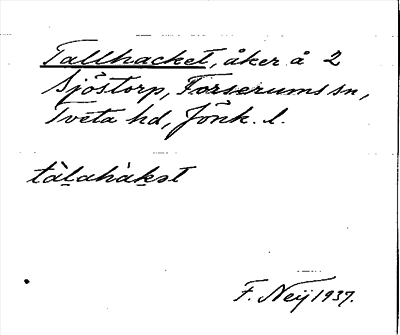 Tallhacket, åker å 2
Sjöstorp, Forserums sn,
Tveta hd, Jönk. l.
tàlahàkət
F. Neij 1937.